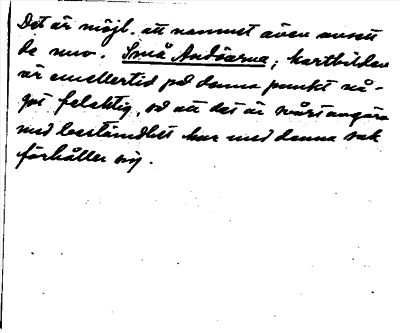 Det är möjl. att namnet även avsett
de nuv. Små Andöarna; kartbilden
är emellertid på denna punkt nå-
got felaktig, så att det är svårt avgöra
med bestämdhet hur med denna sak
förhåller sig.